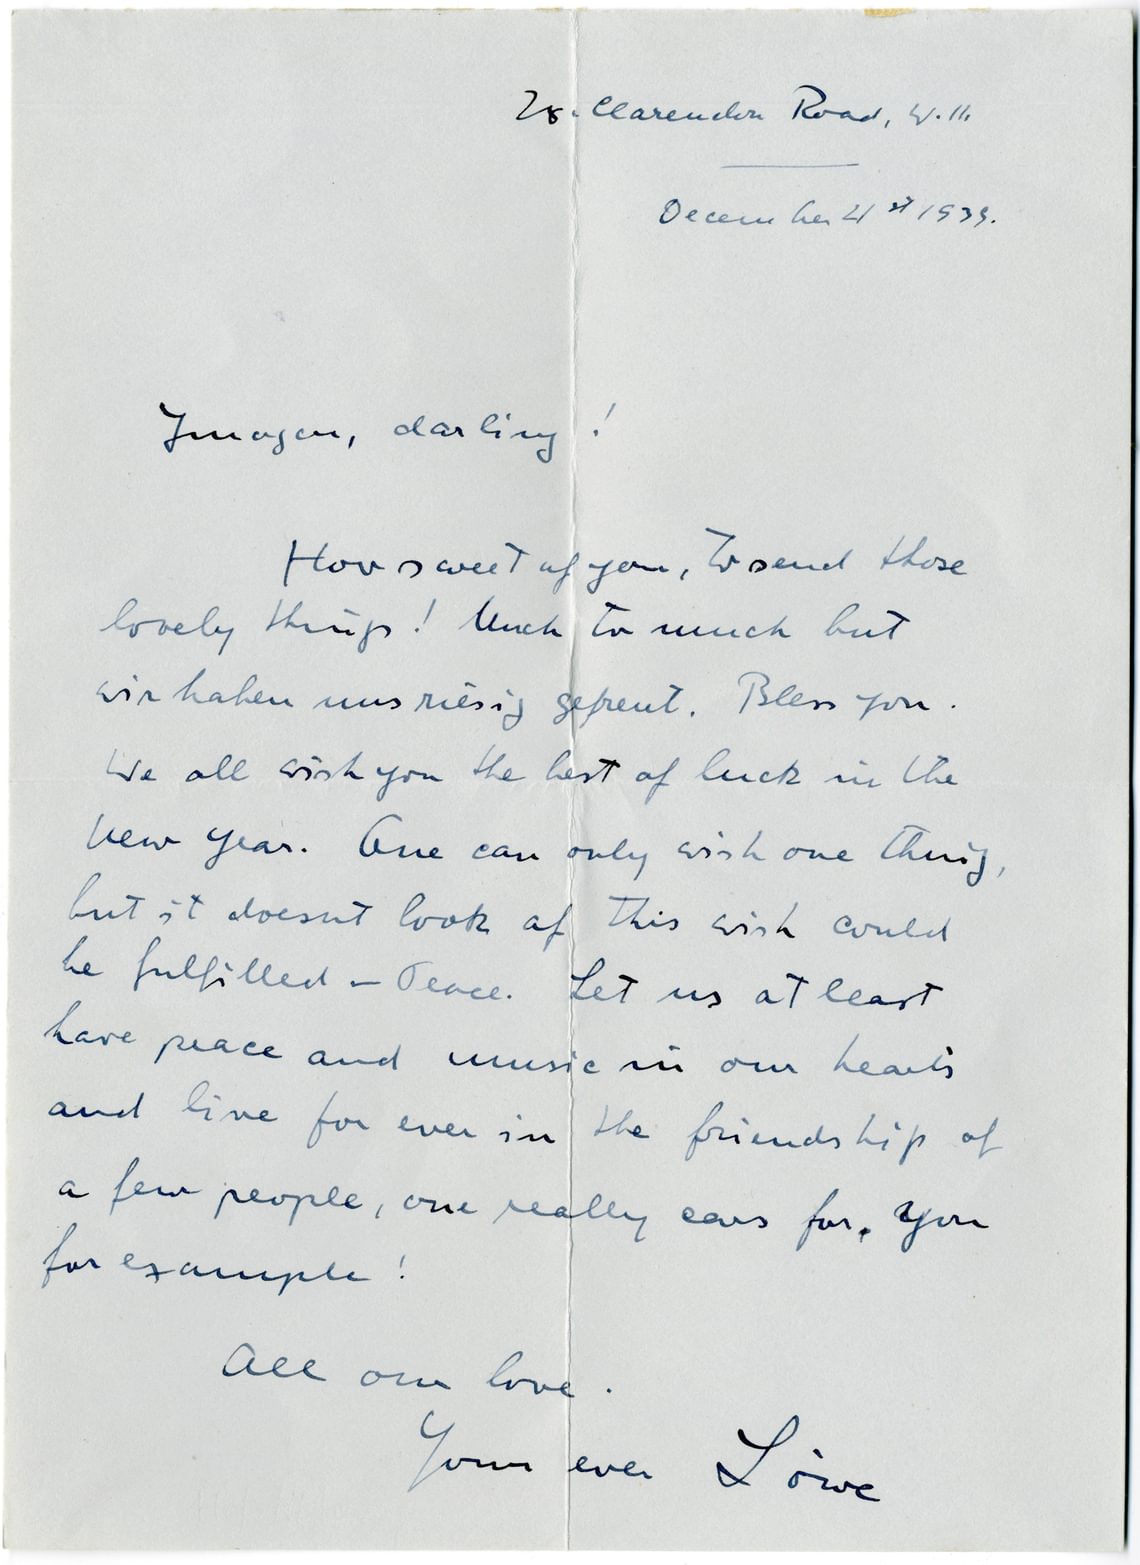 28. Clarendon Road, W.11.
December 21st 1939.
Ymogen, darling!
How sweet of you, to send those
lovely things! Much to much but
wir haben uns riesig gefreut. Bless you.
We all wish you the best of luck in the
New Year. One can only wish one thing,
but it doesnt look as if this wish could
be fulfilled – Peace. Let us at least
have peace and music in our hearts
and live for ever in the friendship of
a few people, one really cares for. You
for example!
All our love.
Yours ever Löwe